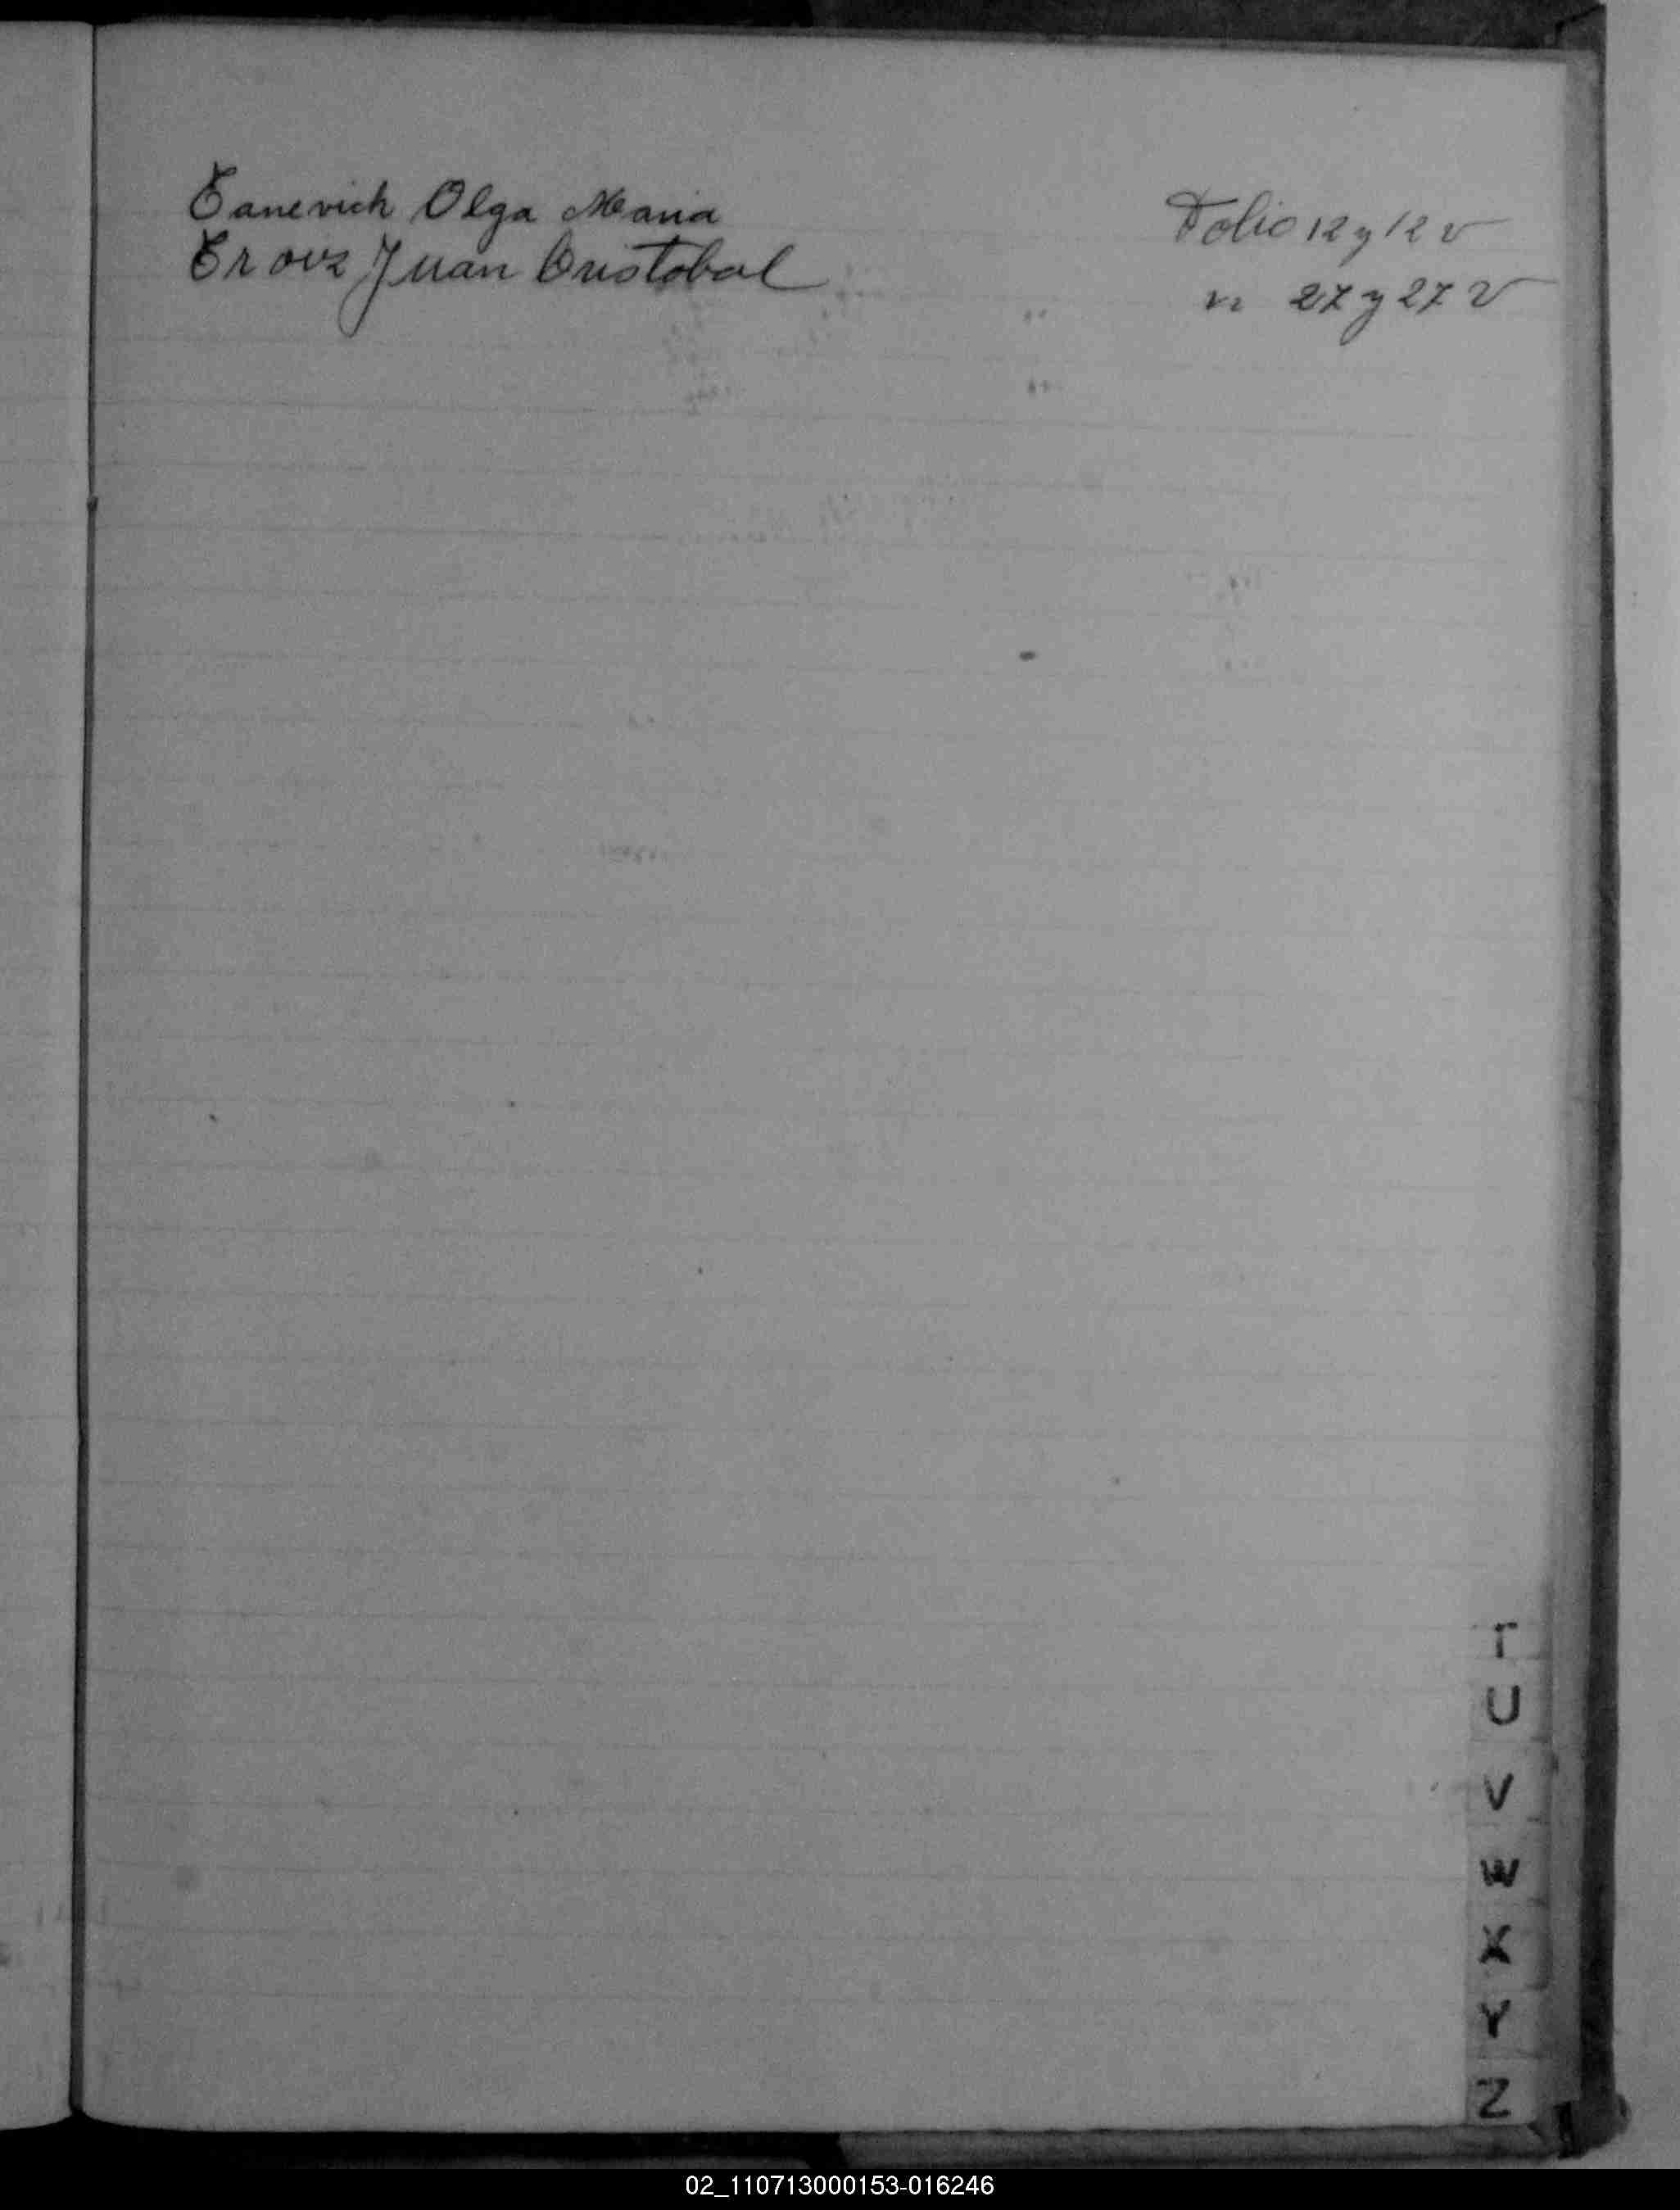 Tanevich Olga Maria Folio 12 y 12 v
Juan Cristobal " 27 y 27 v
T
U
V
W
X
Y
Z
02_110713000153-016246